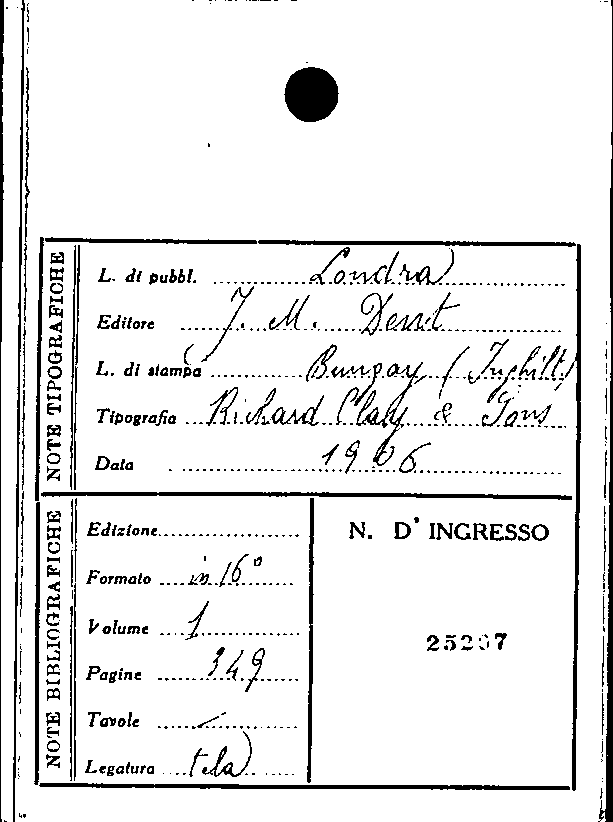 NOTE TIPOGRAFICHE
L. di pubbl. Londra
Editore J. M. Dent
L. di stampa Bungay (Inghilt.)
Tipografia Richard Clay & Sons
Data 1906
NOTE BIBLIOGRAFICHE
Edizione
Formato in 16°
Volume 1
Pagine 349
Tavole /
Legatura tela
N. D' INGRESSO
25207